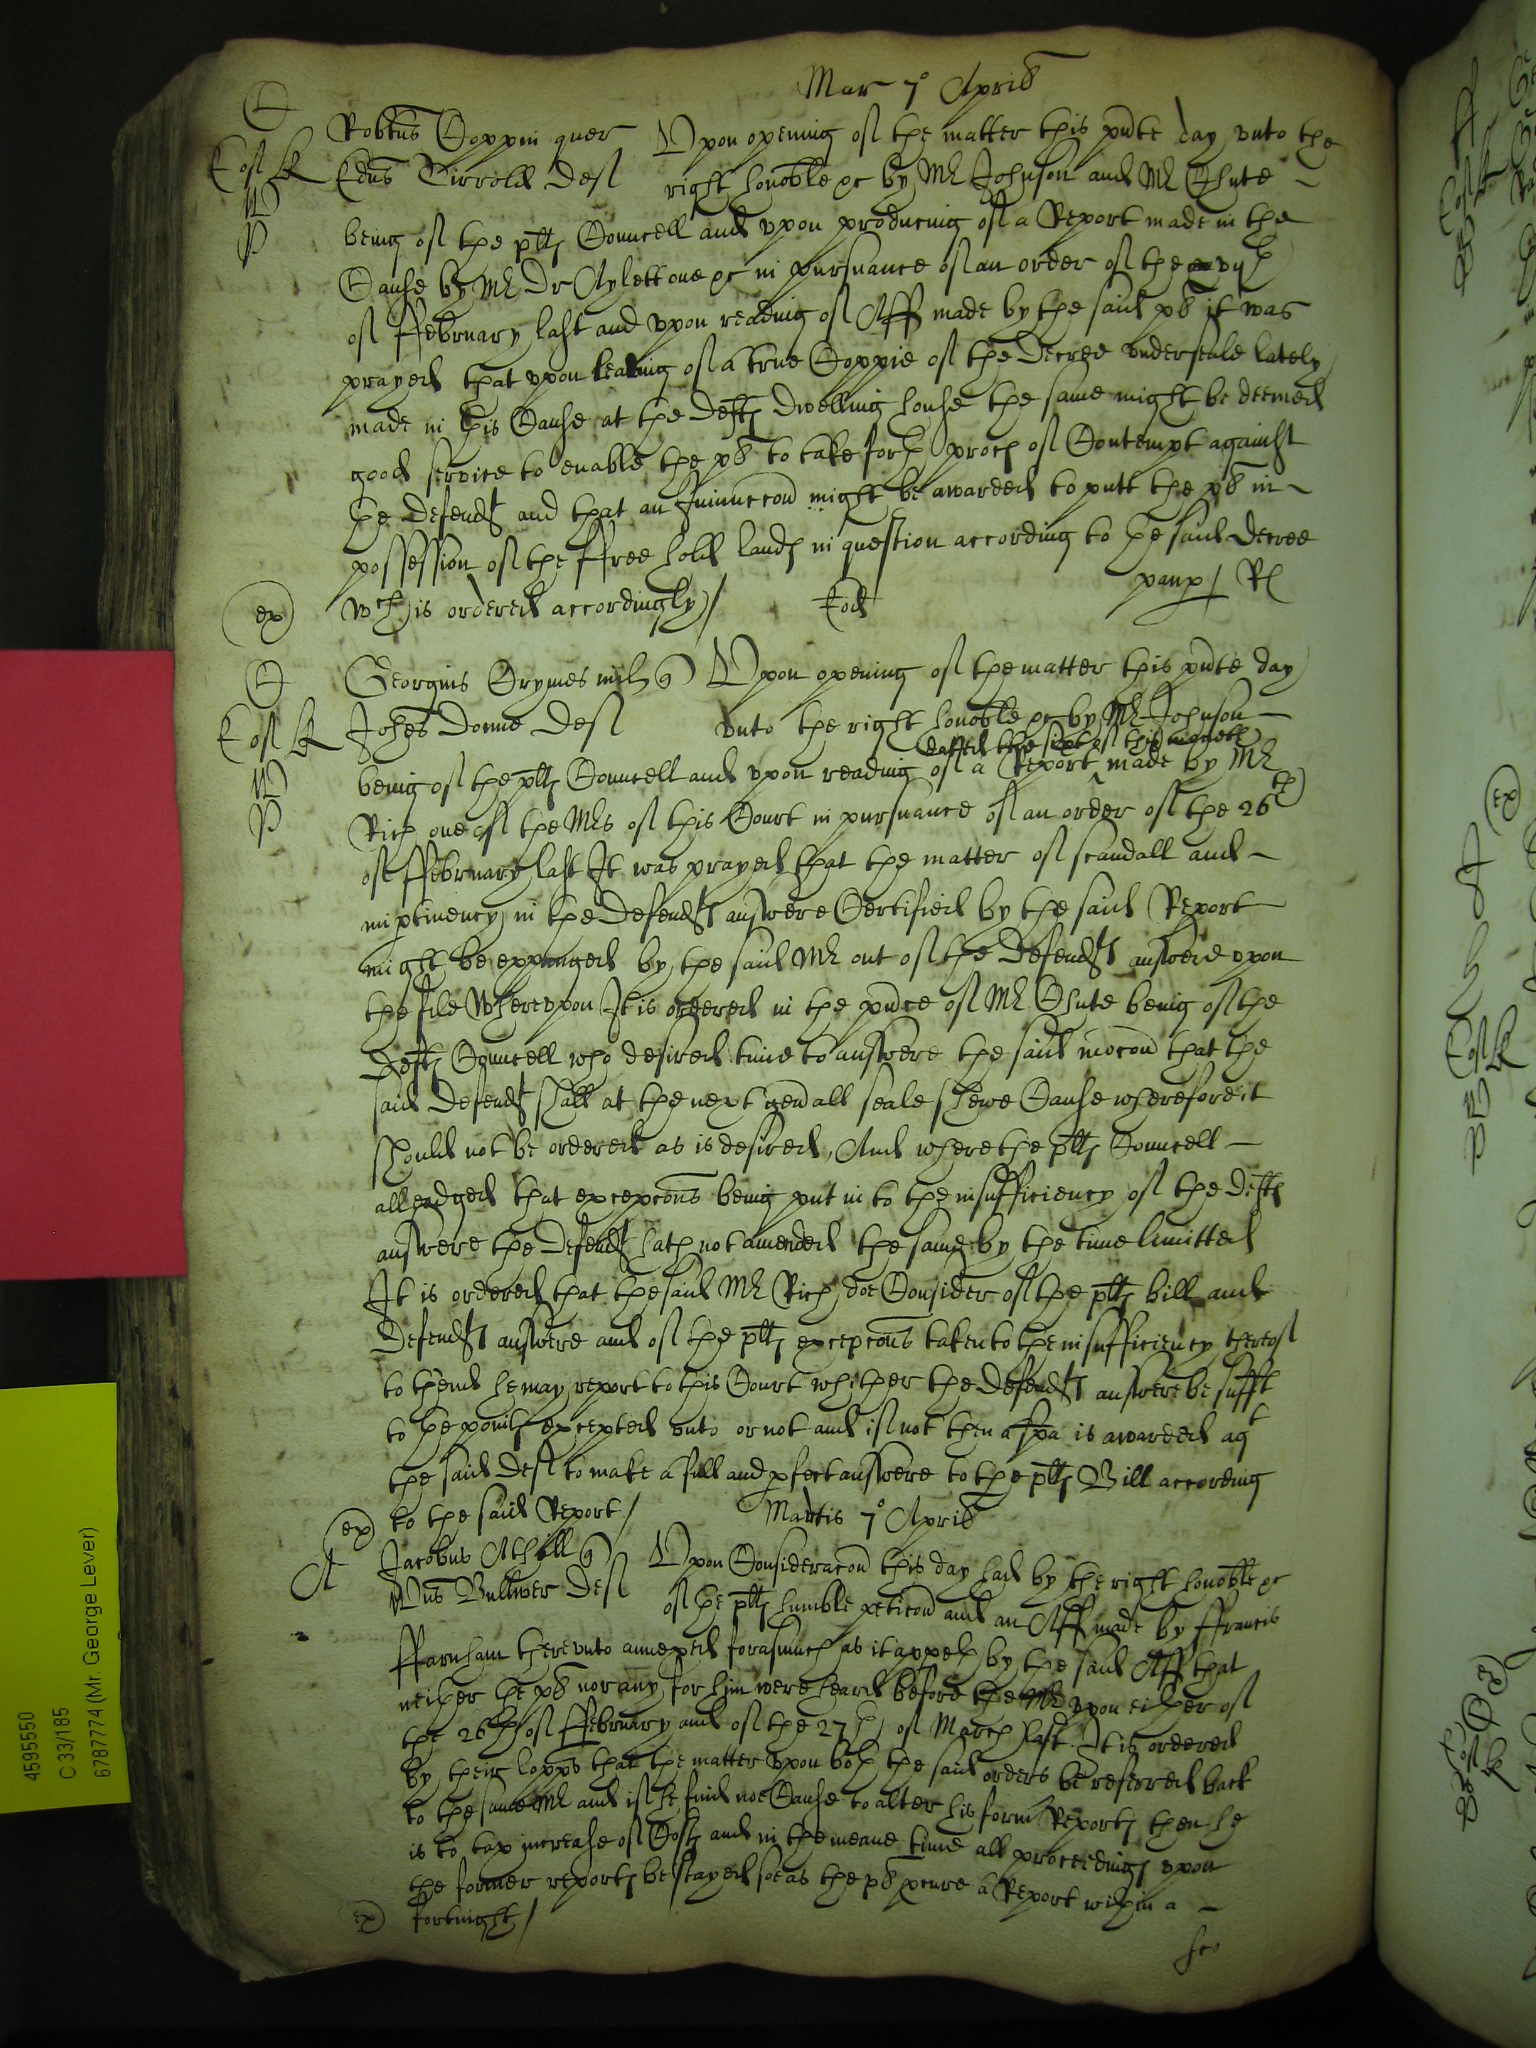 Mar 7o Aprilis
C
Robtus Coppin quer Upon opening of the matter this pnte day vnto the
Edus Tirrold Deft right honoble &c by Mr Johnson and Mr Chute
being of the plts Councell and vpon producing of a Report made in the
Cause by Mr Dr Aylett one &c in pursuance of an order of the vijth
of ffebruary last and vpon reading of Aff made by the said pl it was
prayed that vpon leaving of a true Coppie of the Decree vnder seale lately
made in this Cause at the defts Dwelling house the same might be deemed
good service to enable the pl to take forth proces of Contempt against
the Defendt and that an Iniunccon might be awarded to putt the pl in
possession of the ffree hold lands in question according to the said Decree
wch is ordered accordingly / paup / Rl
ex
C
Georgius Grymes mil q Upon opening of the matter this pnte day
Johes Donne Deft vnto the right honoble &c by Mr Johnson
datted the sixt of this moneth
being of the plts Councell and vpon reading of a Report ^ made by Mr
Rich one of the Mrs of this Court in pursuance of an order of the 26th
of ffebruary last It was prayed that the matter of scandall and
imptinency in the Defendts answere Certified by the said Report
might be expunged by the said Mr out of the Defendts answere vpon
the file Wherevpon It is ordered in the pnce of Mr Chute being of the
Defts Councell who desired time to answere the said mocon that the
said Defendt shall at the next genall seale shewe Cause wherefore it
should not be ordered as is desired, And where the plts Councell
alleadged that excepcons being put in to the insufficiency of the defts
answere the Defendt hath not amended the same by the time limitted
It is ordered that the said Mr Rich doe Consider of the plts bill and
Defendts answere and of the plts excepcons taken to the insufficiency thereof
to thend he may report to this Court whither the Defendts answere be sufft
to the points excepted vnto or not and if not then a spa is awarded agt
the said Deft to make a full and pfect answere to the plts Bill according
to the said Report /
ex
Martis 7o Aprilis
A
Jacobus Athill q Upon Consideracon this day had by the right honoble &c
Wus Bullwer Deft of the plts humble peticon and an Aff made by ffrancis
ffarnham therevnto annexed forasmuch as it appeth by the said Aff that
neither the pl nor any for him were heard before the Mr vpon either of
the 26th of ffebruary and of the 27th of March last. It is ordered
by their lopps that the matter vpon both the said orders be referred back
to the same Mr and if he find noe Cause to alter his form Reports then he
is to tax increase of Costs and in the meane time all proceedings vpon
the former reports be stayed soe as the pl pcure a Report within a
ex fortnight /
4595550
C 33/185
6787774 (Mr. George Lever)